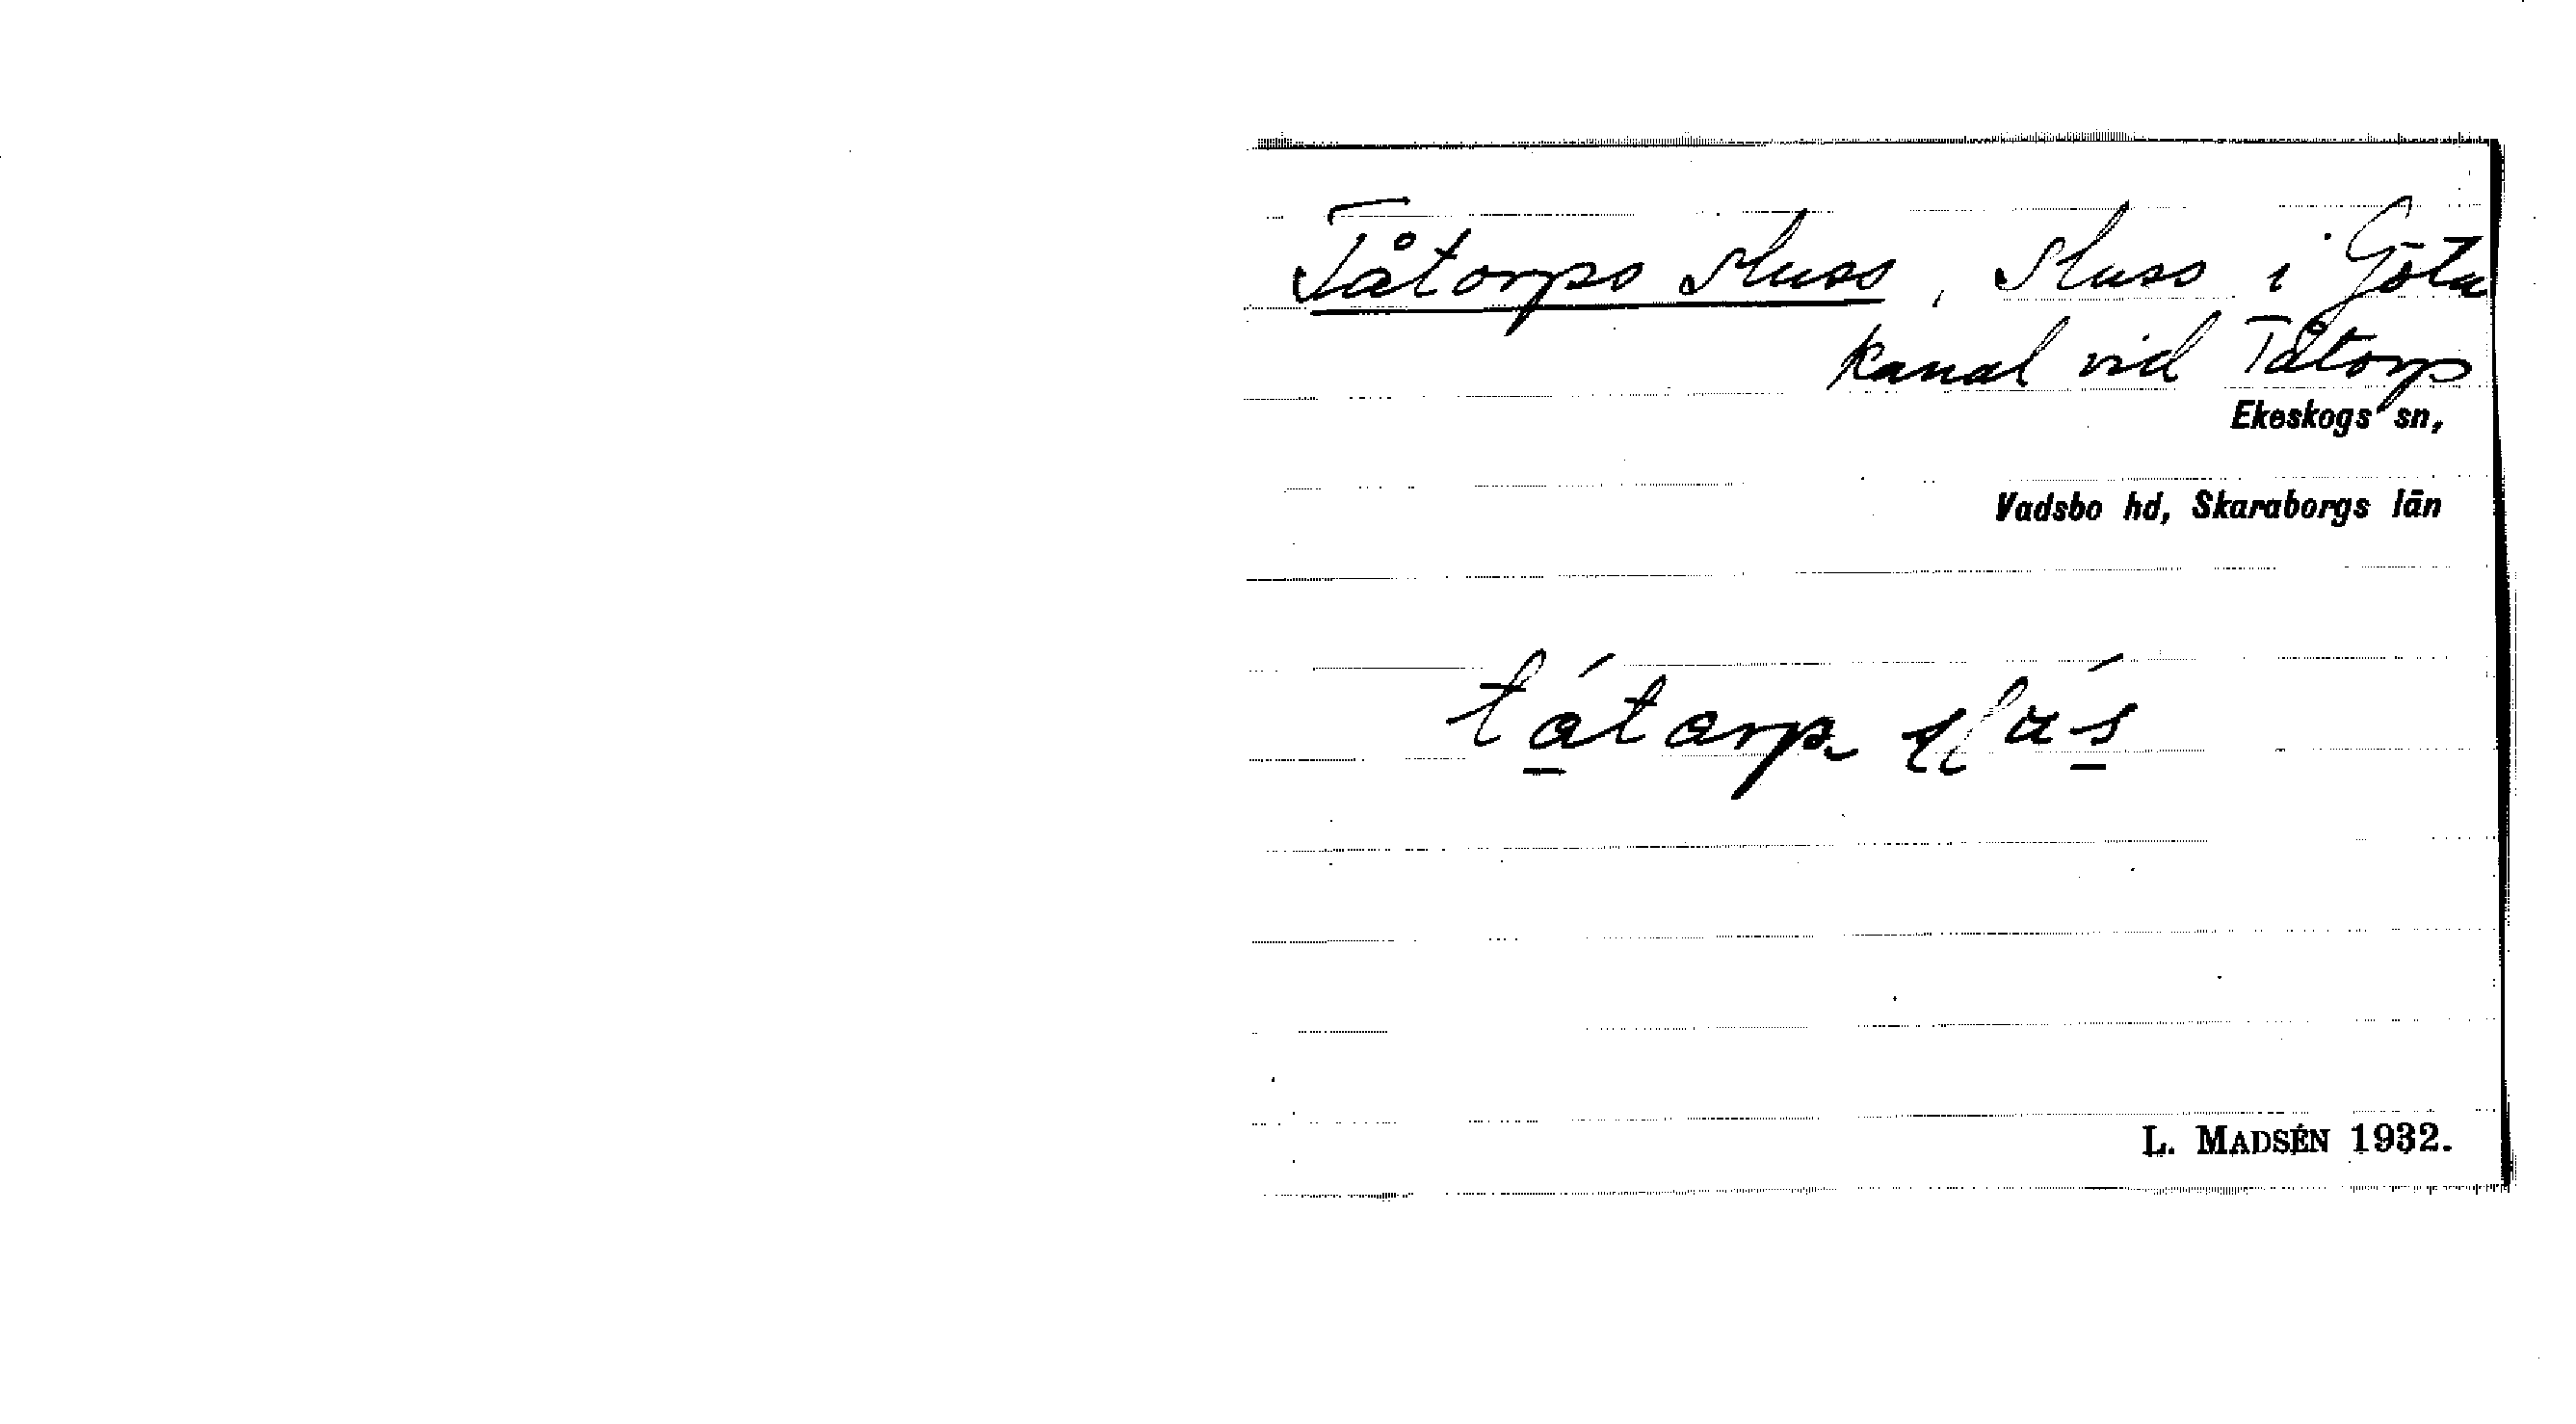 Tåtorps sluss, sluss i Göta
kanal vid Tåtorp
Ekeskogs sn,
Vadsbo hd, Skaraborgs län
L. MADSÉN 1932.